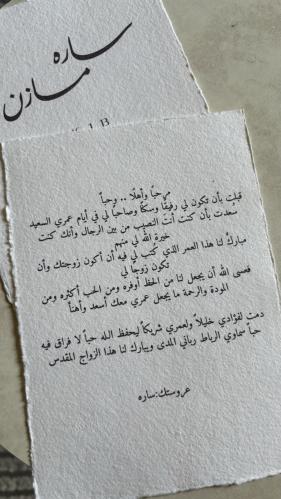 ساره
مازن
مرحباً وأهلًا .. وحباً
قبلت بأن تكون لي رفيقًا وسكنًا وصاحبًا لي في أيام عمري السعيد
سعدت بأن كنت أنت النصيب من بين الرجال وأنك كنت
خيرة الله لي منهم
مباركٌ لنا هذا العمر الذي كُتب لي فيه أن أكون زوجتك وأن
تكون زوجًا لي
فعسى الله أن يجعل لنا من الحظ أوفره ومن الحب أكثره ومن
المودة والرحمة ما يجعل عمري معك أسعد وأهنأ
دمت لفؤادي خليلاً ولعمري شريكاً ليحفظ الله حباً لا فراق فيه
حباً سماوي الرباط رباني المدى ويبارك لنا هذا الزواج المقدس
عروستك:ساره